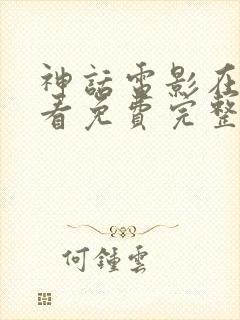 神話電影在
看免費完整
何鍾雲